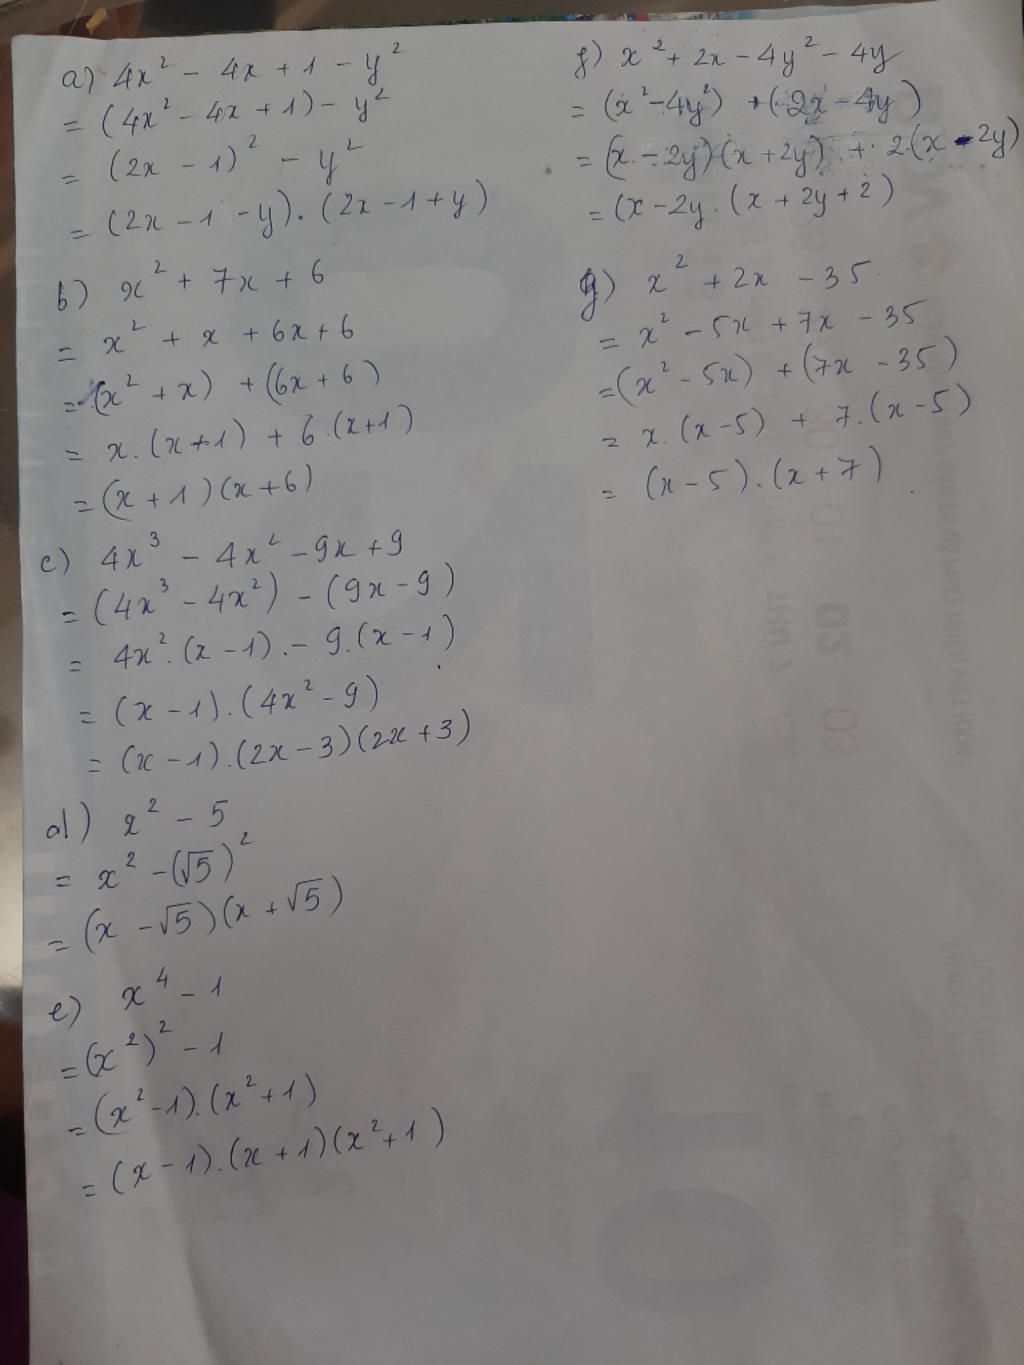 a) 4x² - 4x + 1 - y²
= (4x² - 4x + 1) - y²
= (2x - 1)² - y²
= (2x - 1 - y). (2x - 1 + y)
b) x² + 7x + 6
= x² + x + 6x + 6
= (x² + x) + (6x + 6)
= x. (x + 1) + 6. (x + 1)
= (x + 1)(x + 6)
c) 4x³ - 4x² - 9x + 9
= (4x³ - 4x²) - (9x - 9)
= 4x². (x - 1). - 9. (x - 1)
= (x - 1). (4x² - 9)
= (x - 1). (2x - 3)(2x + 3)
d) x² - 5
= x² - (√5)²
= (x - √5)(x + √5)
e) x⁴ - 1
= (x²)² - 1
= (x² - 1). (x² + 1)
= (x - 1). (x + 1)(x² + 1)
f) x² + 2x - 4y² - 4y
= (x² - 4y²) + (2x - 4y)
= (x - 2y)(x + 2y) + 2(x - 2y)
= (x - 2y. (x + 2y + 2)
g) x² + 2x - 35
= x² - 5x + 7x - 35
= (x² - 5x) + (7x - 35)
= x. (x - 5) + 7. (x - 5)
= (x - 5). (x + 7)